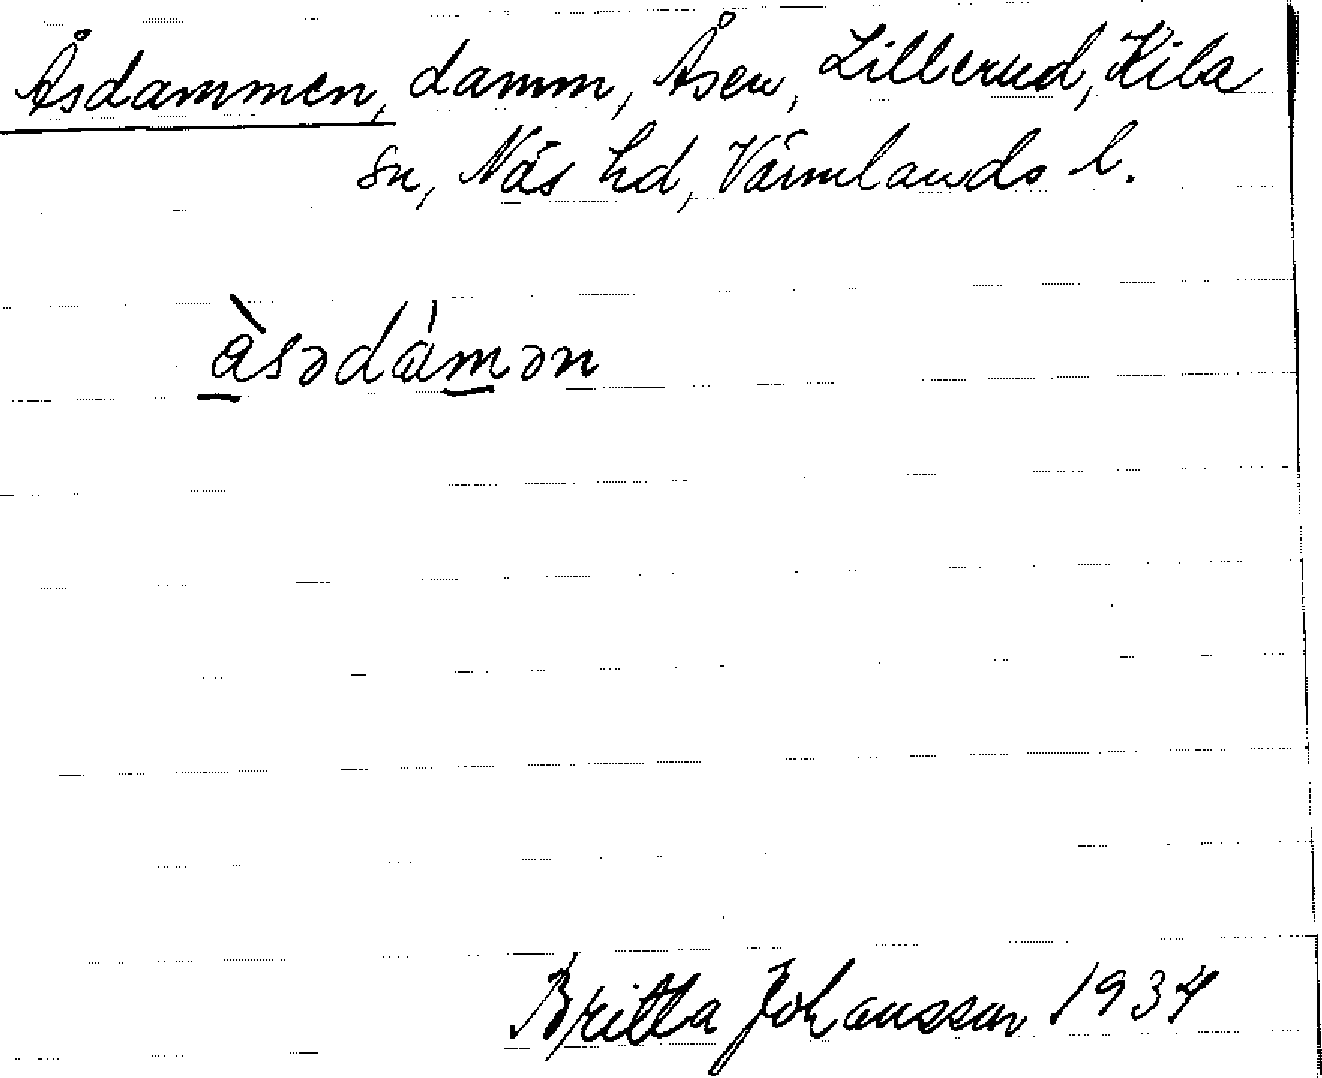 Åsdammen, damm, Åsen, Lillerud, Kila
sn, Näs hd, Värmlands l.
àsədámən
Britta Johansson 1934